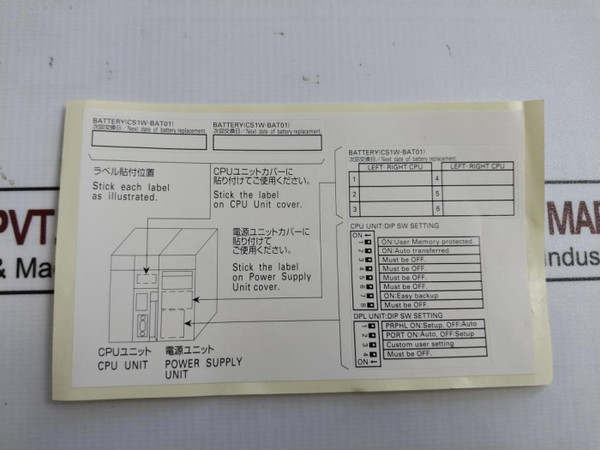 BATTERY(CS1W-BAT01)
次回交換日/Next date of battery replacement.
BATTERY(CS1W-BAT01)
次回交換日/Next date of battery replacement.
ラベル貼付位置
Stick each label
as illustrated.
CPUユニットカバーに
貼り付けてご使用ください。
Stick the label
on CPU Unit cover.
電源ユニットカバーに
貼り付けて
ご使用ください。
Stick the label
on Power Supply
Unit cover.
CPUユニット
CPU UNIT
電源ユニット
POWER SUPPLY
UNIT
BATTERY(CS1W-BAT01)
次回交換日/Next date of battery replacement.
LEFT- RIGHT CPU LEFT- RIGHT CPU
1 4
2 5
3 6
CPU UNIT:DIP SW SETTING
ON←
1 ON:User Memory protected
2 ON:Auto transferred
3 Must be OFF.
4 Must be OFF.
5 Must be OFF.
6 Must be OFF.
7 ON:Easy backup
8 Must be OFF.
DPL UNIT:DIP SW SETTING
1 PRPHL ON:Setup, OFF:Auto
2 PORT ON:Auto, OFF:Setup
3 Custom user setting
4 Must be OFF.
ON←
PVT.
& Ma
MAR
indus